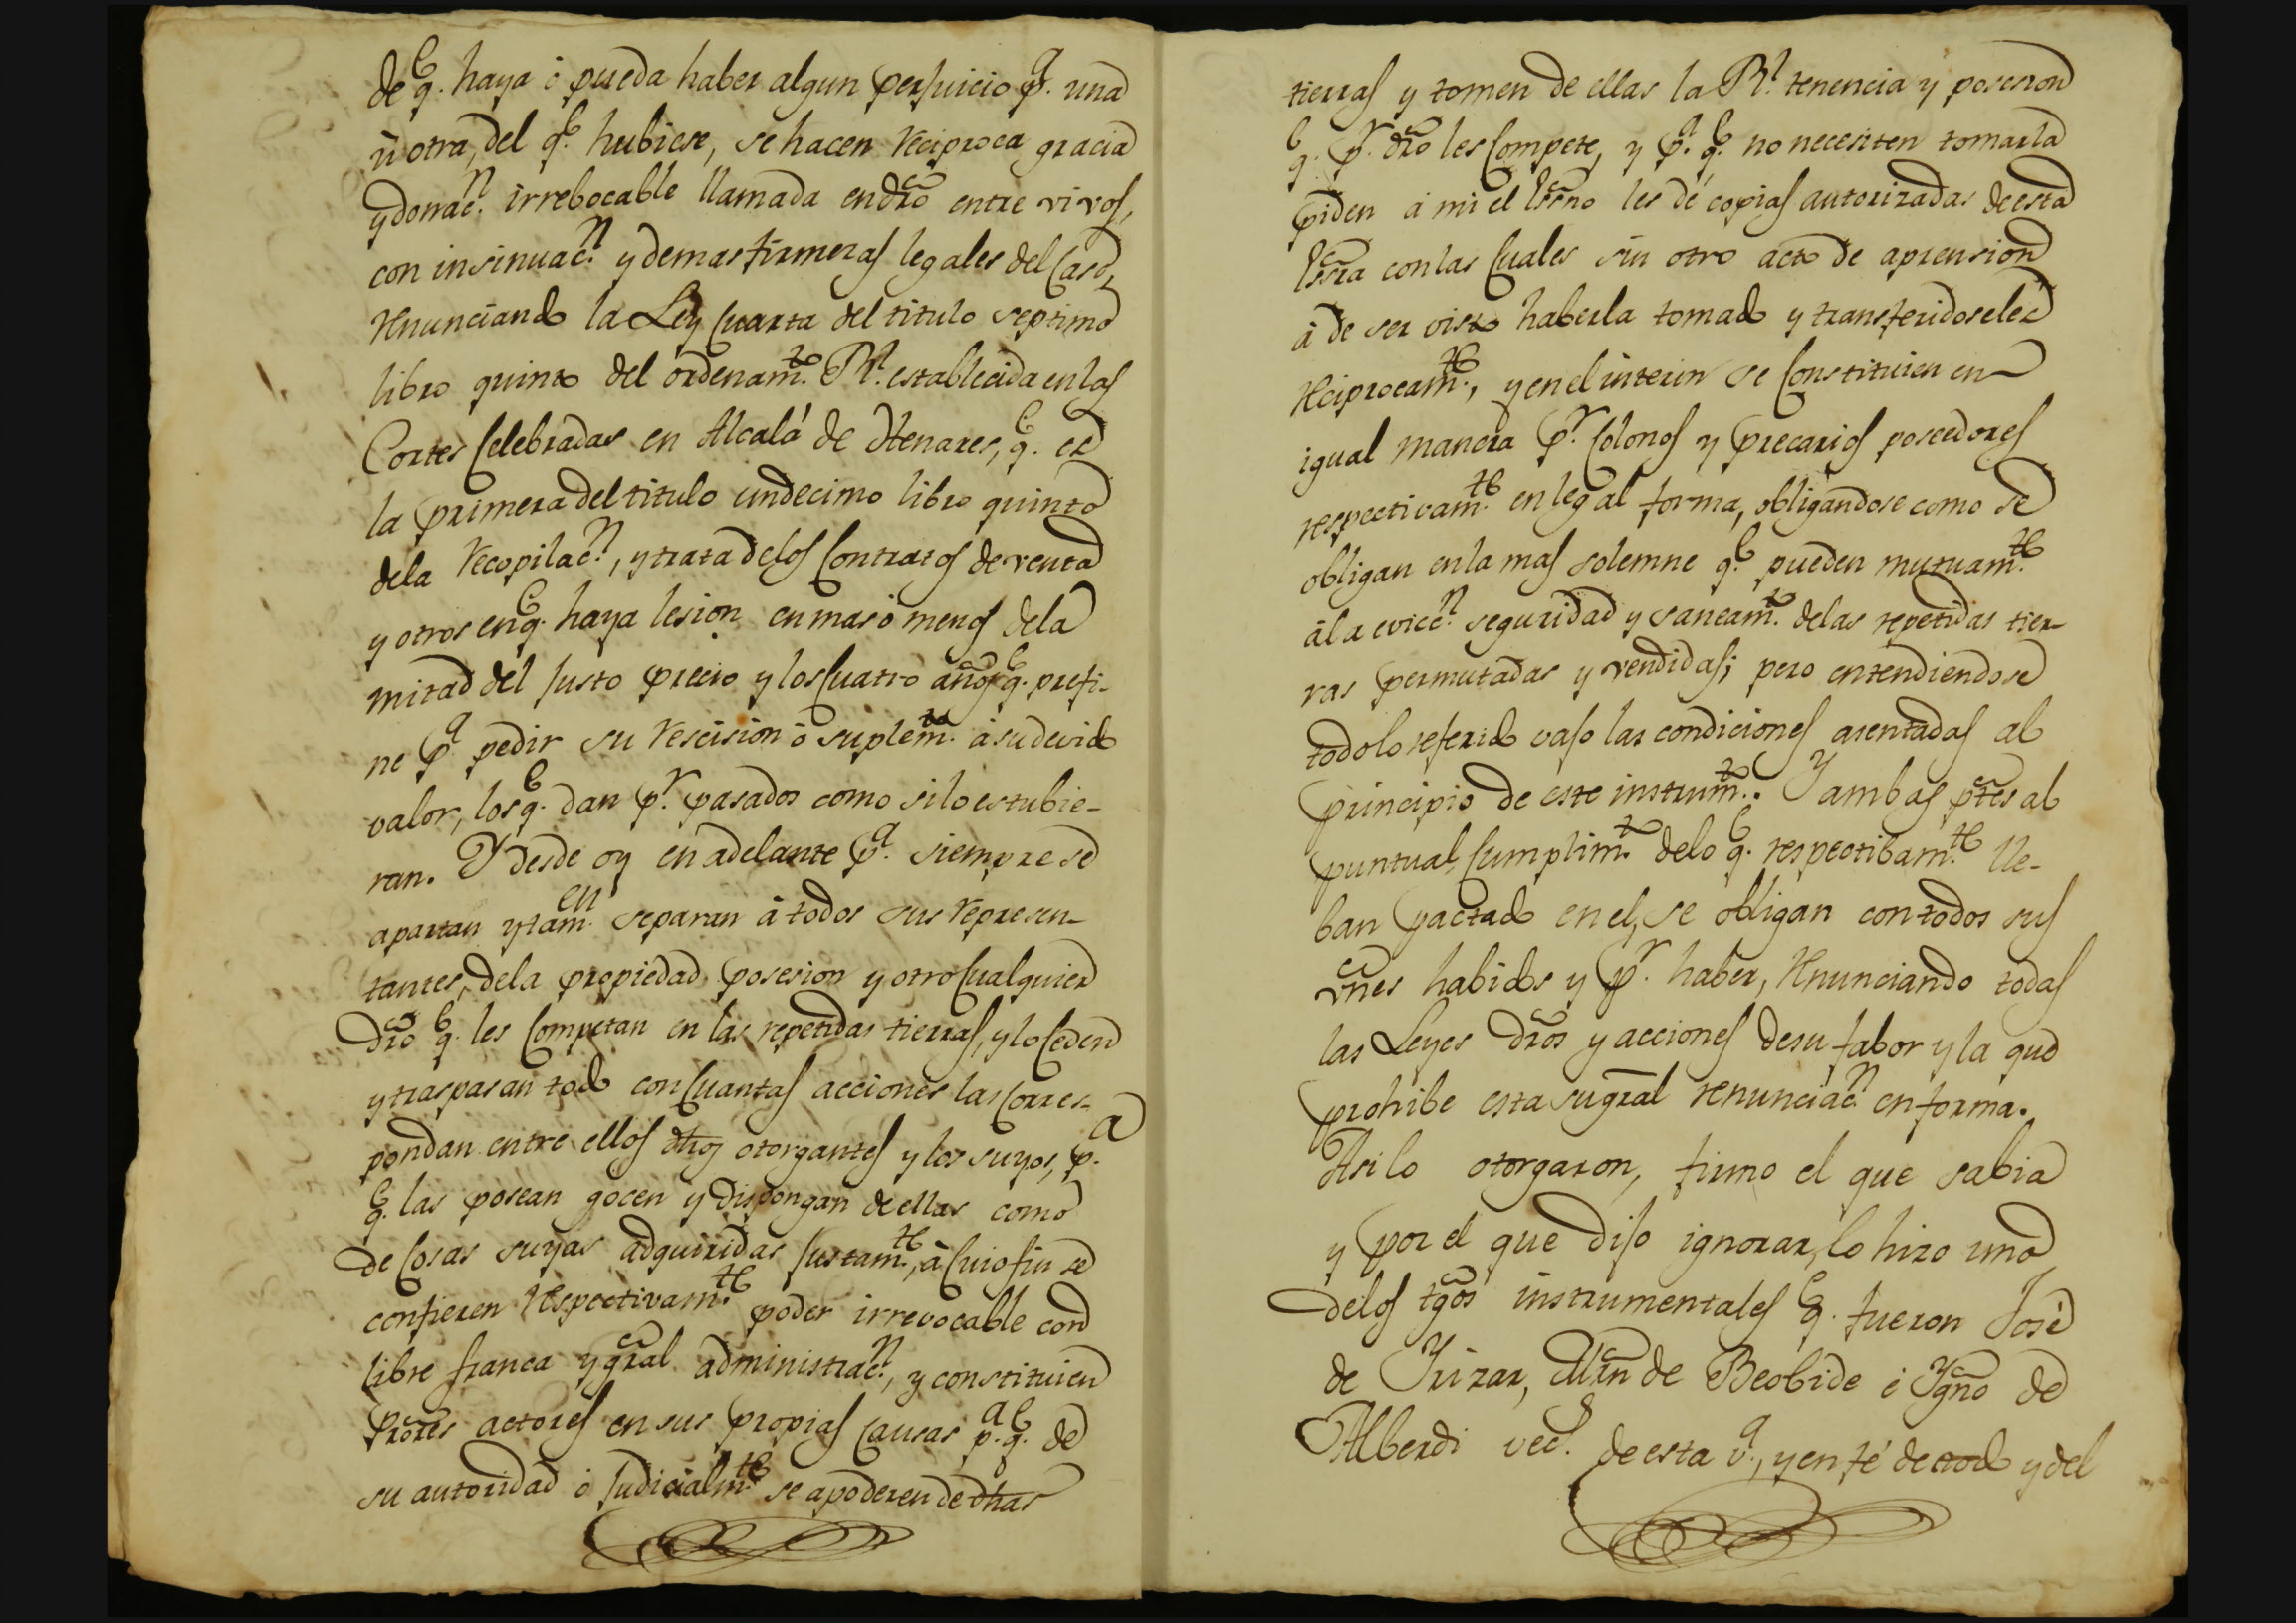 de q.e haya ó pueda haber algun perjuicio p.a una
ú otra, del q.e hubiere, se hacen reciproca gracia
y donac.n irrebocable llamada en dro entre vivos,
con insinuac.n y demas firmezas legales del Caso,
renunciando la Ley Cuarta del titulo septimo
libro quinto del ordenam.to R.l establecida en las
Cortes Celebradas en Alcalá de Henares, q.e es
la primera del titulo undecimo libro quinto
de la recopilac.n, y trata de los Contratos de venta
y otros en q.e haya lesion en mas ó menos de la
mitad del Justo precio y los Cuatro años q.e prefi-
ne p.a pedir su rescision ó suplem.to á su devido
valor, los q.e dan p.r pasados como si lo estubie-
ran. Y desde oy en adelante p.a siempre se
apartan y tam.en separan á todos sus represen-
tantes, de la propiedad posesion y otro Cualquier
dro q.e les Competan en las repetidas tierras, y lo Ceden
y traspasan todo con Cuantas acciones las Corres-
pondan entre ellos dhos otorgantes y los suyos, p.a
q.e las posean gocen y dispongan de ellas como
de Cosas suyas adquiridas Justam.te, á Cuio fin se
confieren respectivam.te poder irrevocable con
libre franca y gral administrac.n, y constituien
Prores actores en sus propias Causas p.a q.e de
su autoridad ó Judicialm.te se apoderen de dhas
tierras y tomen de ellas la R.l tenencia y posesion
q.e p.r dro les Compete, y p.a q.e no necesiten tomarla
piden á mi el Essno les dé copias autorizadas de esta
Essra con las Cuales sin otro acto de aprension
á de ser visto haberla tomado y transferidosele
reciprocam.te, y en el interin se Constituien en
igual manera p.r Colonos y precarios poseedores
respectivam.te en legal forma, obligandose como se
obligan en la mas solemne q.e pueden mutuam.te
á la evicc.n seguridad y saneam.to de las repetidas tier-
ras permutadas y vendidas; pero entendiendose
todo lo referido vajo las condiciones asentadas al
principio de este instrum.to. Y ambas ptes al
puntual Cumplim.to de lo q.e respectibam.te lle-
ban pactado en el, se obligan con todos sus
vnes habidos y p.r haber, renunciando todas
las Leyes dros y acciones de su fabor y la que
prohibe esta su gral renunciac.n en forma.
Asi lo otorgaron, firmo el que sabia
y por el que dijo ignorar, lo hizo uno
de los tgos instrumentales q.e fueron José
de Yrizar, Mrn de Beobide é Ygno de
Alberdi vec.s de esta v.a, y en fé de todo y del